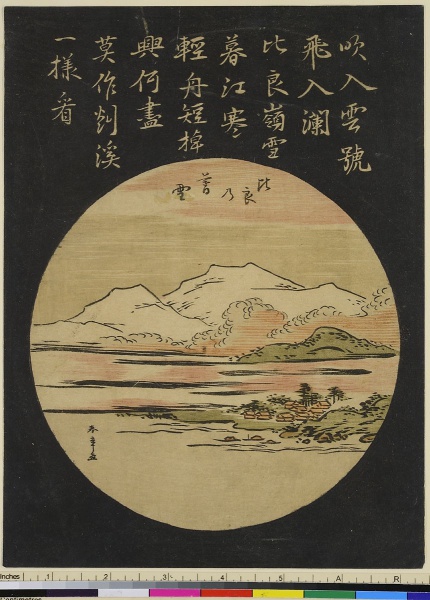 吹入雲號
飛入瀾
比良嶺雪
暮江寒
輕舟短棹
興何盡
莫作剡溪
一樣看
比良乃暮雪
春章画
Inches 1 2 3 4 5
Centimetres